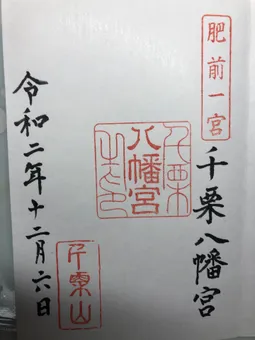 肥前一宮
千栗八幡宮
八幡宮
千栗山
令和二年十二月六日